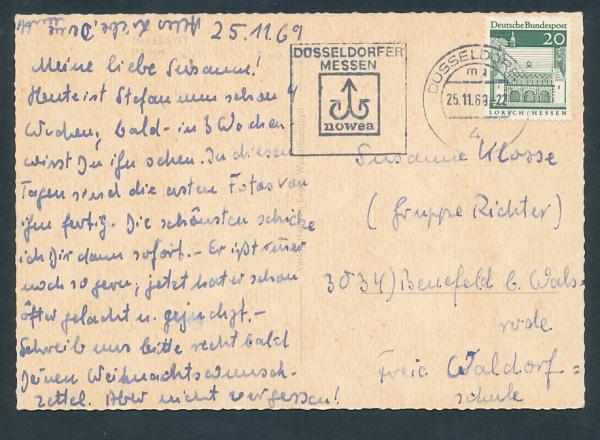 Alles Liebe, Deine
25.11.69
Meine liebe Susanne!
Heute ist Stefan nun schon 4
Wochen, bald - in 3 Wochen -
wirst Du ihn sehen. In diesen
Tagen sind die ersten Fotos von
ihm fertig. Die schönsten schicke
ich Dir dann sofort. - Er ißt immer
noch so gern, jetzt hat er schon
öfter gelacht u. gejuchzt. -
Schreib uns bitte recht bald
Deinen Weihnachtswunsch-
zettel. Aber nicht vergessen!
DÜSSELDORFER
MESSEN
nowea
DÜSSELDORF
ma
25.11.69-22
4
Deutsche Bundespost
20
LORSCH/HESSEN
Susanne Klosse
(Gruppe Richter)
3034) Benefeld b. Wals-
rode
Freie Waldorf=
schule